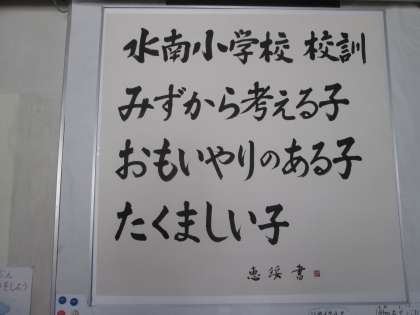 水南小学校 校訓
みずから考える子
おもいやりのある子
たくましい子
恵 綏 書